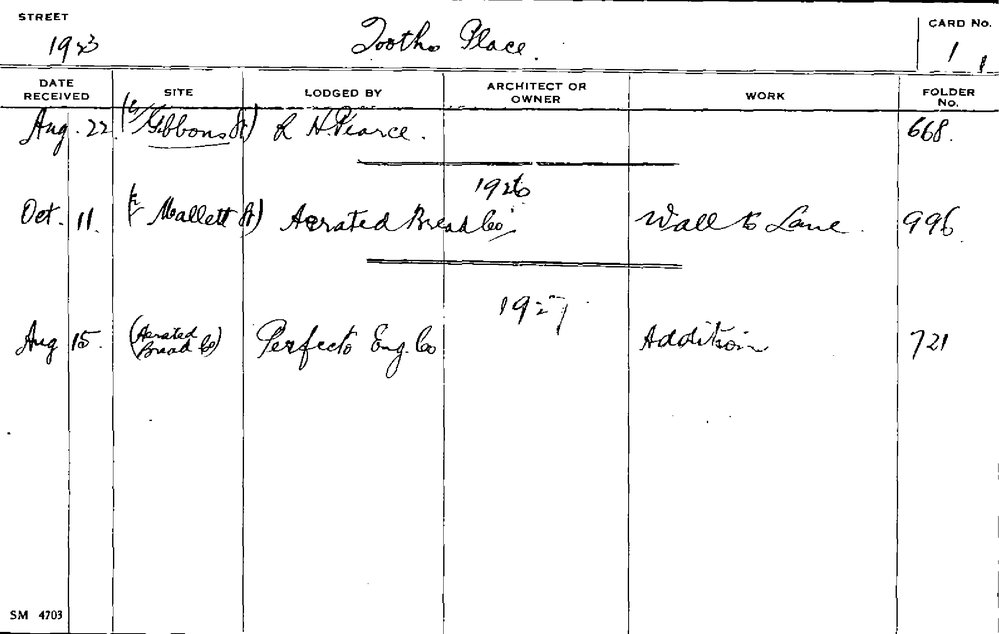 STREET
1923 Tooths Place.
CARD No.
1 1
DATE RECEIVED SITE LODGED BY ARCHITECT OR OWNER WORK FOLDER No.
Aug. 22. (c/ Gibbons St) L H. Pearce. 668.
1926
Oct. 11. (c/ Mallett St) Aerated Bread Co Wall to Lane. 996.
1927
Aug 15. (Aerated Bread Co) Perfecto Eng. Co Addition 721
SM 4703